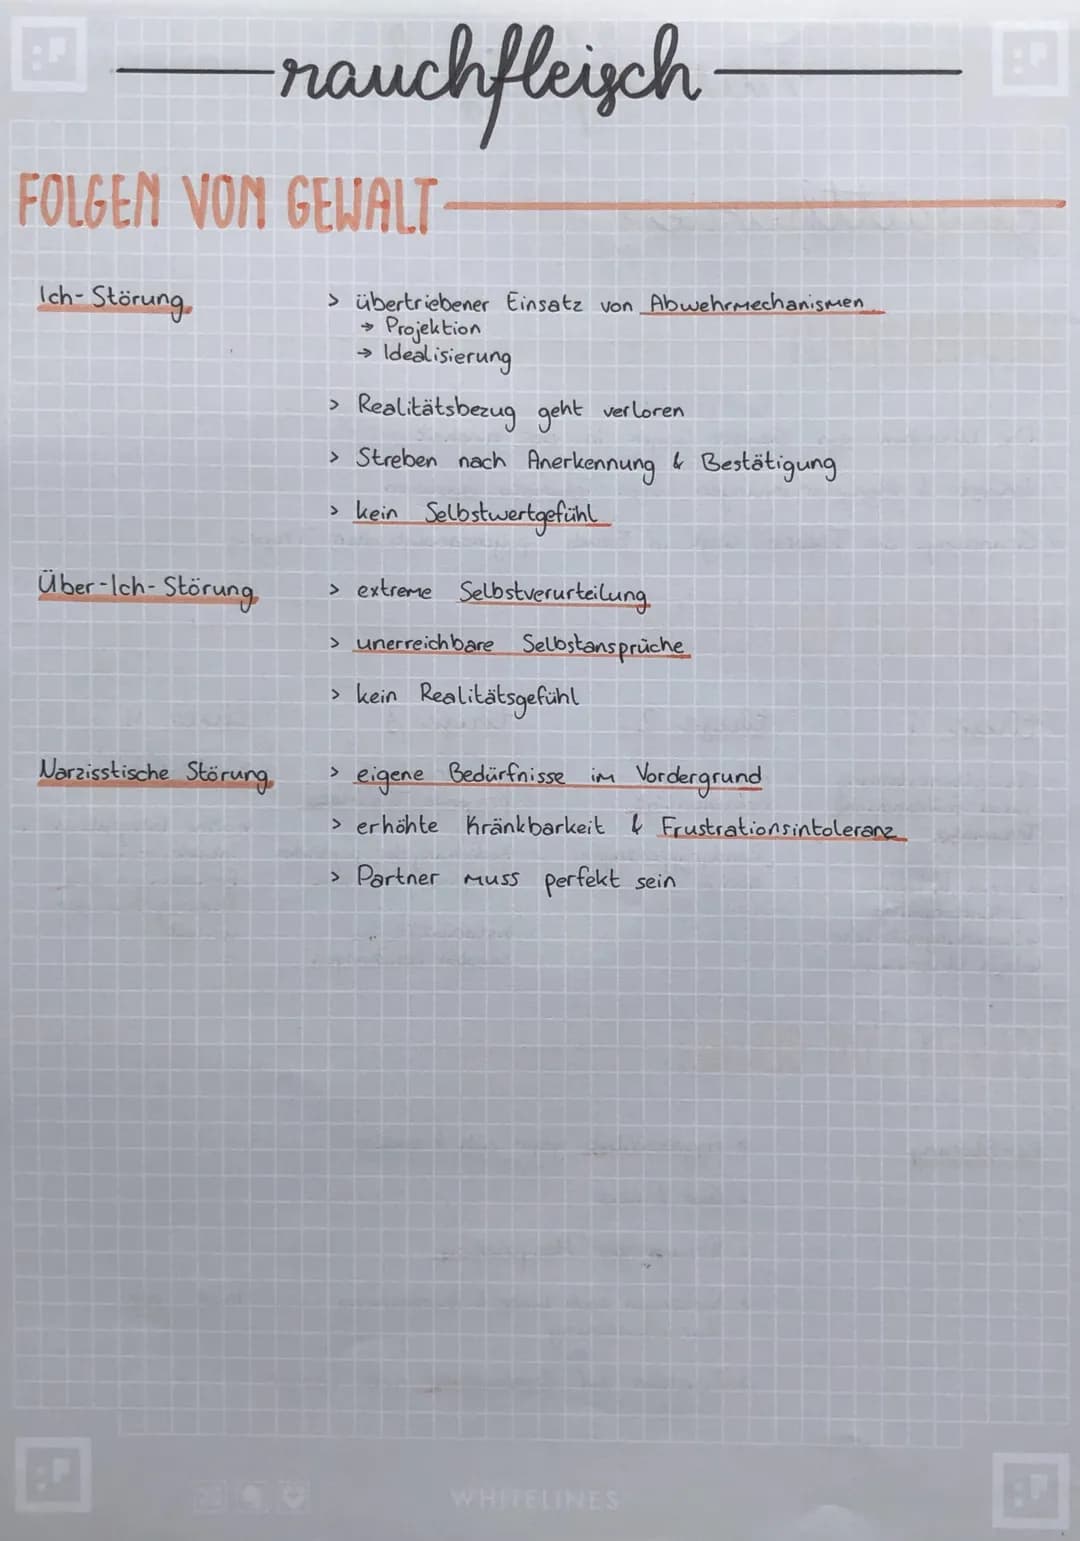 rauchfleisch
FOLGEN VON GEWALT
Ich-Störung > übertriebener Einsatz von Abwehrmechanismen
→ Projektion
→ Idealisierung
> Realitätsbezug geht verloren
> Streben nach Anerkennung & Bestätigung
> kein Selbstwertgefühl
Über-Ich-Störung > extreme Selbstverurteilung
> unerreichbare Selbstansprüche
> kein Realitätsgefühl
Narzisstische Störung > eigene Bedürfnisse im Vordergrund
> erhöhte Kränkbarkeit & Frustrationsintoleranz
> Partner muss perfekt sein
WHITELINES